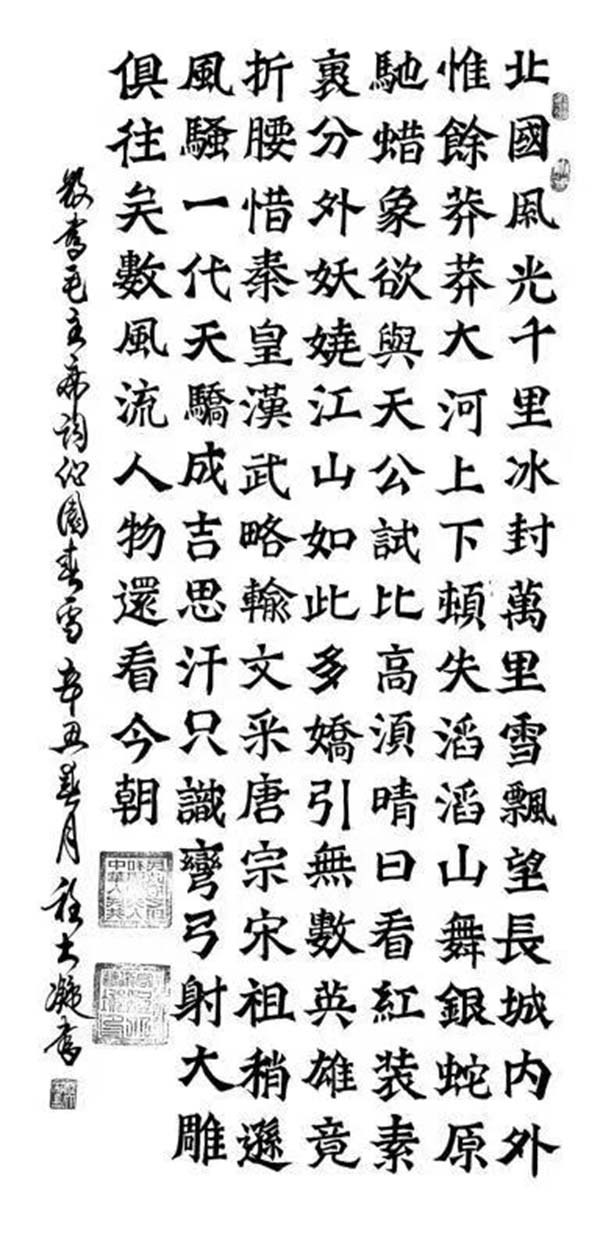 北國風光千里冰封萬里雪飄望長城內外
惟餘莽莽大河上下頓失滔滔山舞銀蛇原
馳蜡象欲與天公試比高須晴日看紅装素
裹分外妖嬈江山如此多嬌引無數英雄竟
折腰惜秦皇漢武略輸文采唐宗宋祖稍遜
風騷一代天驕成吉思汗只識彎弓射大雕
俱往矣數風流人物還看今朝
敬書毛主席詞沁園春雪 辛丑春月程書